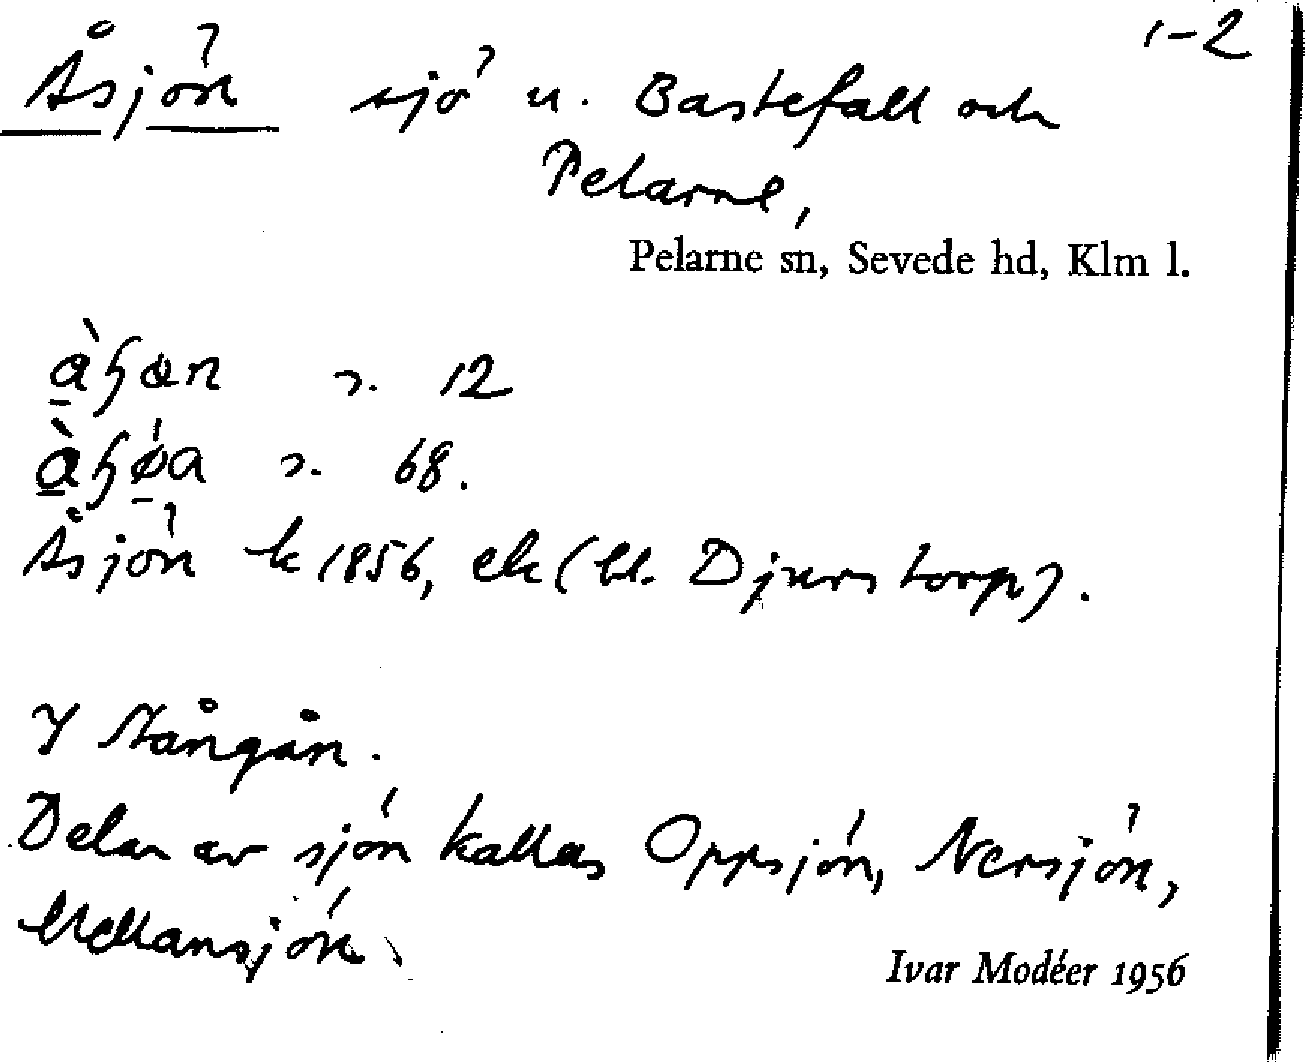 1-2
Åsjön sjö u. Bastefall och
Pelarne,
Pelarne sn, Sevede hd, Klm l.
12
68.
Åsjön k 1856, ek (bl. Djurstorp).
Y Stångån.
Delar av sjön kallas Oppsjön, Nersjön,
Mellansjön.
Ivar Modéer 1956